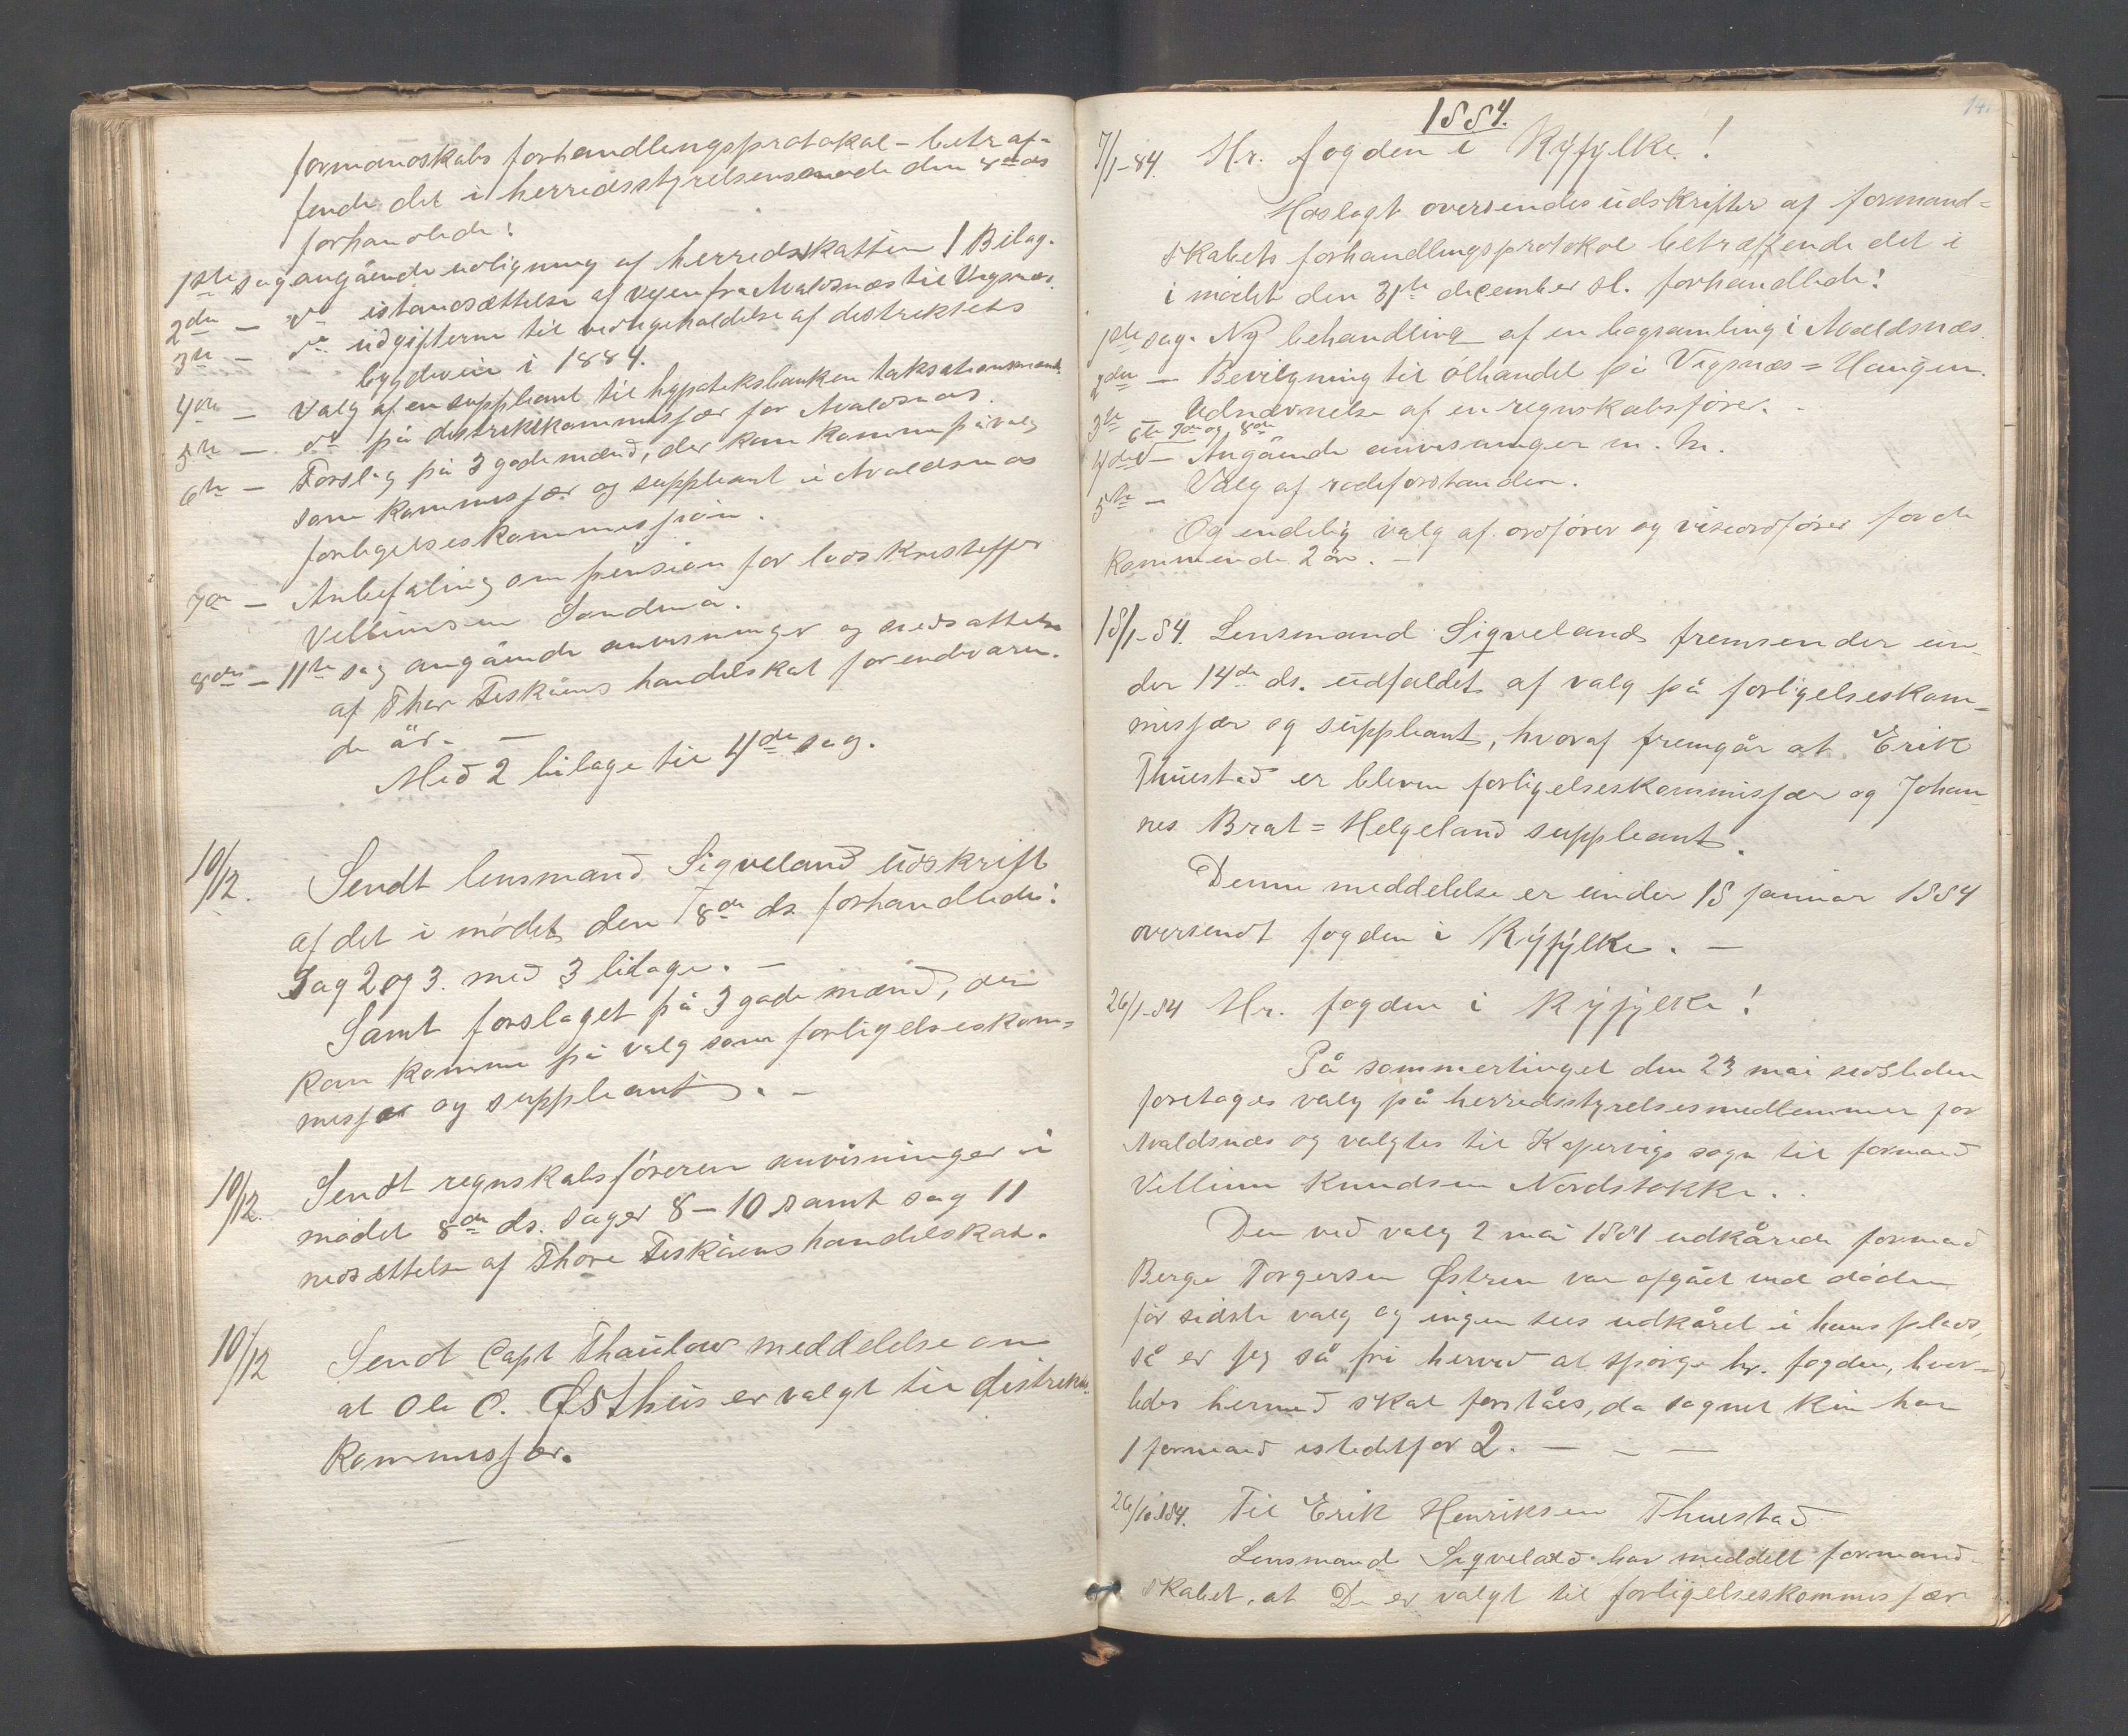 formandskabs forhandlingsprotokol - betræf-
fende det i herredsstyrelsens møde den 8de ds
forhandlede:
1ste sag angående udligning af herredsskatten 1 Bilag.
2den - do istandsættelse af vejen fra Avaldsnæs til Vigsnæs.
3die - do udgifterne til vedligeholdelse af distriktets
bygdeveie i 1884.
4de - Valg af en suppleant til hypotheksbanken taksationsmænd.
5te - do på distriktskommissær for Avaldsnæs.
6te - Forslag på 3 gode mænd, der kan komme på valg
som kommissær og suppleant i Avaldsnæs
forligelseskommission.
7de - Anbefaling om pension for lods Kristoffer
Velliumsen Sandma.
8de - 11te sag angående anvisninger og nedsættelse
af Thor Feskåens handelskat forendevaren-
de år. -
Med 2 bilage til 4de sag.
10/12. Sendt lensmand Siqveland udskrift
af det i mødet den 8de ds forhandlede:
Sag 2 og 3. med 3 bilage. -
Samt forslaget på 3 gode mænd, der
kan komme på valg som forligelseskom-
misær og suppleant. -
10/12. Sendt regnskabsføreren anvisninger i
mødet 8de ds. sager 8 - 10 samt sag 11
nedsættelse af Thore Feskåens handelskat.
10/12 Sendt Capt Thaulow meddelelse om
at Ole C. Østhus er valgt til distrikts
kommissær.
1884.
7/1-84. Hr. fogden i Ryfylke!
Hoslagt oversendes udskrifter af formand-
skabets forhandlingsprotokol betræffende det i
i mødet den 31te december sl. forhandlede:
1ste sag. Ny behandling af en bogsamling i Avaldsnæs.
2den - Bevilgning til ølhandel på Vigsnæs = Haugen.
3die - Udnævnelse af en regnskabsfører. -
6te 7de og 8de
4de - Angående anvisninger m. m.
5te - Valg af rodeforstandere.
Og endelig valg af ordfører og viseordfører for de
kommende 2 år. -
18/1-84. Lensmand Siqveland fremsender un-
der 14de ds. udfaldet af valg på forligelseskom-
missær og suppleant, hvoraf fremgår at Erik
Thuestad er bleven forligelseskommissær og Johan-
nes Brat = Helgeland suppleant.
Denne meddelelse er under 18 januar 1884
oversendt fogden i Ryfylke. -
26/1-84 Hr. fogden i Ryfylke!
På sommertinget den 23 mai sidstleden
foretoges valg på herredsstyrelsesmedlemmer for
Avaldsnæs og valgtes til Kopervigs sogn til formand
Vellium Knudsen Nordstokke.
Den ved valg 2 mai 1881 udkårede formand
Berge Torgersen Østrem var afgået ved døden
før sidste valg og ingen sees udkåret i hans plads,
så er jeg så fri herved at spørge hr. fogden, hvor-
ledes hermed skal forståes, da sognet kun har
1 formand istedetfor 2. - - -
26/1 84. Til Erik Henriksen Thuestad
Lensmand Siqveland har meddelt formand-
skabet, at De er valgt til forligelseskommissær